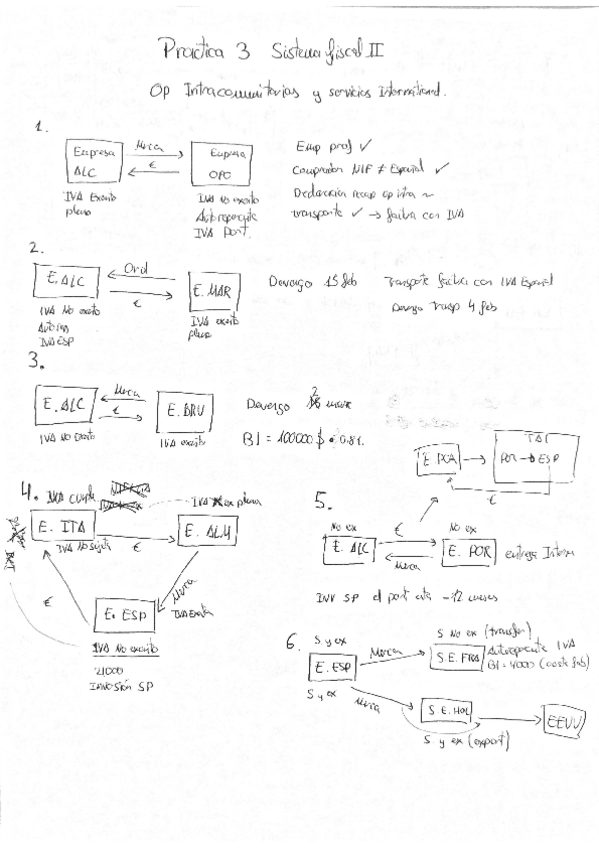 Practica 3 Sistema fiscal II
Op Intracomunitarias y servicios International.
1.
Empresa ALC
Merca
€
Empresa OPO
IVA Exento pleno
IVA No exento
Autorepercute
IVA Port.
Emp prof ✓
Comprador NIF ≠ Español ✓
Declaracion recap op intra ~
transporte ✓ → factura con IVA
2.
E. ALC
€
E. MAR
IVA No exento
IVA ESP
IVA exento pleno
Devengo 15 feb
Transporte factura con IVA Español
Devengo Transp 4 feb
3.
E. ALC
Merca
€
E. BRU
IVA No exento
IVA exento
Devengo
BI = 100000 $ • 0.81.
4.
E. ITA
IVA No sujeta
€
E. ALM
Merca
IVA Exenta
€
E. ESP
IVA No exento
21000
Inversión SP
5.
E. POR
POR → ESP
€
No ex
E. ALC
€
Merca
No ex
E. POR
entrega Interior
INV SP el port esta -12 meses
6.
S y ex
E. ESP
S y ex
Merca
S No ex (transfer)
S.E. FRA
Autorepercute IVA
BI = 4000
Merca
S E. HOL
S y ex (export)
EEUU